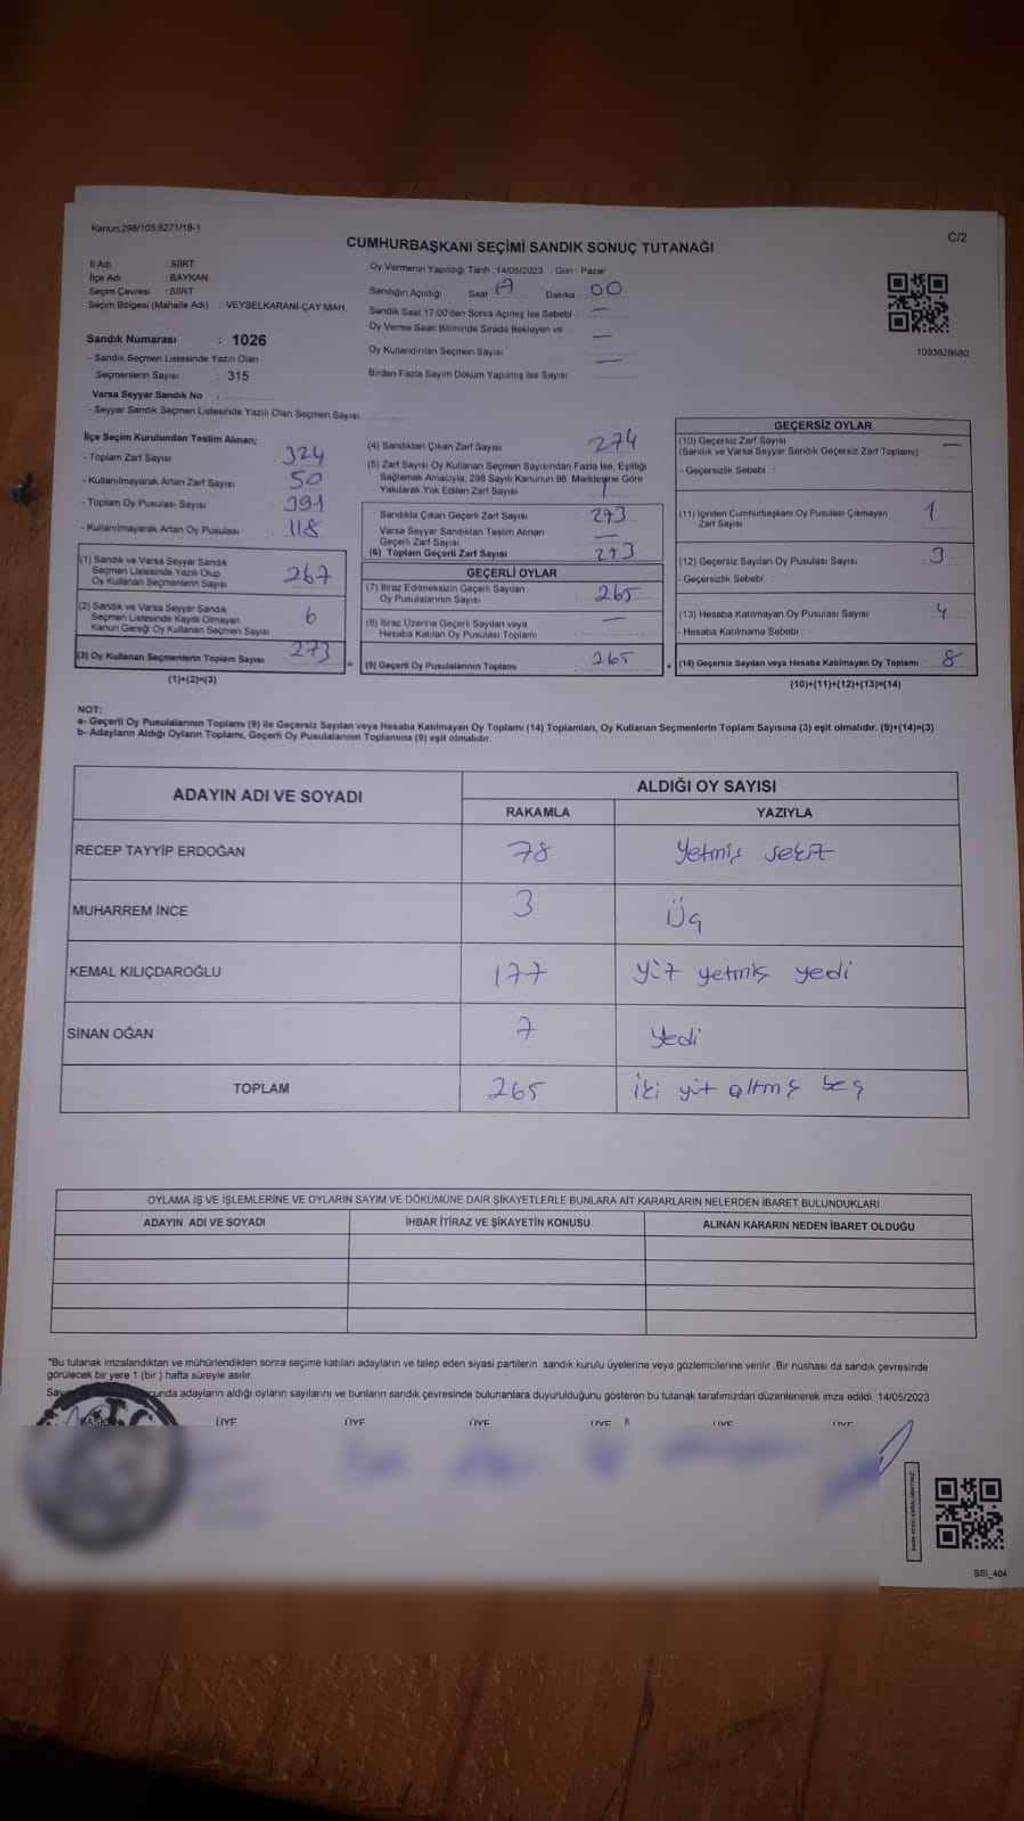 Kanun:298/105,6271/18-1
C/2
CUMHURBAŞKANI SEÇİMİ SANDIK SONUÇ TUTANAĞI
İl Adı : SİİRT
İlçe Adı : BAYKAN
Seçim Çevresi : SİİRT
Seçim Bölgesi (Mahalle Adı) : VEYSELKARANİ-ÇAY MAH.
Oy Vermenin Yapıldığı Tarih :14/05/2023 Gün : Pazar
Sandığın Açıldığı Saat 17 Dakika 00
Sandık Saat 17:00'den Sonra Açılmış İse Sebebi —
Oy Verme Saati Bitiminde Sırada Bekleyen ve
Oy Kullandırılan Seçmen Sayısı —
Birden Fazla Sayım Döküm Yapılmış İse Sayısı —
Sandık Numarası : 1026
- Sandık Seçmen Listesinde Yazılı Olan
Seçmenlerin Sayısı : 315
Varsa Seyyar Sandık No :
- Seyyar Sandık Seçmen Listesinde Yazılı Olan Seçmen Sayısı
İlçe Seçim Kurulundan Teslim Alınan;
- Toplam Zarf Sayısı 324
- Kullanılmayarak Artan Zarf Sayısı 50
- Toplam Oy Pusulası Sayısı 391
- Kullanılmayarak Artan Oy Pusulası 118
(1) Sandık ve Varsa Seyyar Sandık
Seçmen Listesinde Yazılı Olup
Oy Kullanan Seçmenlerin Sayısı 267
(2) Sandık ve Varsa Seyyar Sandık
Seçmen Listesinde Kayıtlı Olmayan
Kanun Gereği Oy Kullanan Seçmen Sayısı 6
(3) Oy Kullanan Seçmenlerin Toplam Sayısı 273
(1)+(2)=(3)
(4) Sandıktan Çıkan Zarf Sayısı 274
(5) Zarf Sayısı Oy Kullanan Seçmen Sayısından Fazla İse, Eşitliği
Sağlamak Amacıyla, 298 Sayılı Kanunun 98. Maddesine Göre
Yakılarak Yok Edilen Zarf Sayısı 1
Sandıkta Çıkan Geçerli Zarf Sayısı 273
Varsa Seyyar Sandıktan Teslim Alınan
Geçerli Zarf Sayısı —
(6) Toplam Geçerli Zarf Sayısı 273
GEÇERLİ OYLAR
(7) İtiraz Edilmeksizin Geçerli Sayılan
Oy Pusulalarının Sayısı 265
(8) İtiraz Üzerine Geçerli Sayılan veya
Hesaba Katılan Oy Pusulası Toplamı —
(9) Geçerli Oy Pusulalarının Toplamı 265
GEÇERSİZ OYLAR
(10) Geçersiz Zarf Sayısı —
(Sandık ve Varsa Seyyar Sandık Geçersiz Zarf Toplamı)
- Geçersizlik Sebebi :
(11) İçinden Cumhurbaşkanı Oy Pusulası Çıkmayan
Zarf Sayısı 1
(12) Geçersiz Sayılan Oy Pusulası Sayısı 3
- Geçersizlik Sebebi :
(13) Hesaba Katılmayan Oy Pusulası Sayısı 4
- Hesaba Katılmama Sebebi :
(14) Geçersiz Sayılan veya Hesaba Katılmayan Oy Toplamı 8
(10)+(11)+(12)+(13)=(14)
NOT:
a- Geçerli Oy Pusulalarının Toplamı (9) ile Geçersiz Sayılan veya Hesaba Katılmayan Oy Toplamı (14) Toplamları, Oy Kullanan Seçmenlerin Toplam Sayısına (3) eşit olmalıdır. (9)+(14)=(3)
b- Adayların Aldığı Oyların Toplamı, Geçerli Oy Pusulalarının Toplamına (9) eşit olmalıdır.
ADAYIN ADI VE SOYADI
ALDIĞI OY SAYISI
RAKAMLA YAZIYLA
RECEP TAYYİP ERDOĞAN 78 yetmiş sekiz
MUHARREM İNCE 3 Üç
KEMAL KILIÇDAROĞLU 177 yüz yetmiş yedi
SİNAN OĞAN 7 yedi
TOPLAM 265 iki yüz altmış beş
OYLAMA İŞ VE İŞLEMLERİNE VE OYLARIN SAYIM VE DÖKÜMÜNE DAİR ŞİKAYETLERLE BUNLARA AİT KARARLARIN NELERDEN İBARET BULUNDUKLARI
ADAYIN ADI VE SOYADI İHBAR İTİRAZ VE ŞİKAYETİN KONUSU ALINAN KARARIN NEDEN İBARET OLDUĞU
*Bu tutanak imzalandıktan ve mühürlendikten sonra seçime katılan adayların ve talep eden siyasi partilerin sandık kurulu üyelerine veya gözlemcilerine verilir. Bir nüshası da sandık çevresinde
görülecek bir yere 1 (bir ) hafta süreyle asılır.
adayların aldığı oyların sayılarını ve bunların sandık çevresinde bulunanlara duyurulduğunu gösteren bu tutanak tarafımızdan düzenlenerek imza edildi. 14/05/2023
ÜYE ÜYE ÜYE ÜYE ÜYE ÜYE
SSI_404